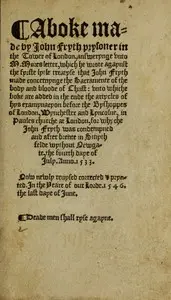 A boke ma-
de by John Fryth prysoner in
the Tower of London, answerynge vnto
M. Mores letter, which he wrote agaynst
the fyrste lytle treatyse that John Fryth
made concernynge the Sacramente of the
body and bloude of Christ: vnto whiche
boke are added in the ende the artycles of
hys examynacyon before the Byshoppes
of London, Wynchester and Lyncolne, in
Paules churche at London, for which
John Fryth was condempned
and after burnt in Smyth
felde without Newga-
te, the fourth daye of
July. Anno. 1533.
Now newly reuysed corrected & pryn-
ted. In the Yeare of our Lorde. 1546.
the last daye of June.
Deade men shall ryse agayne.